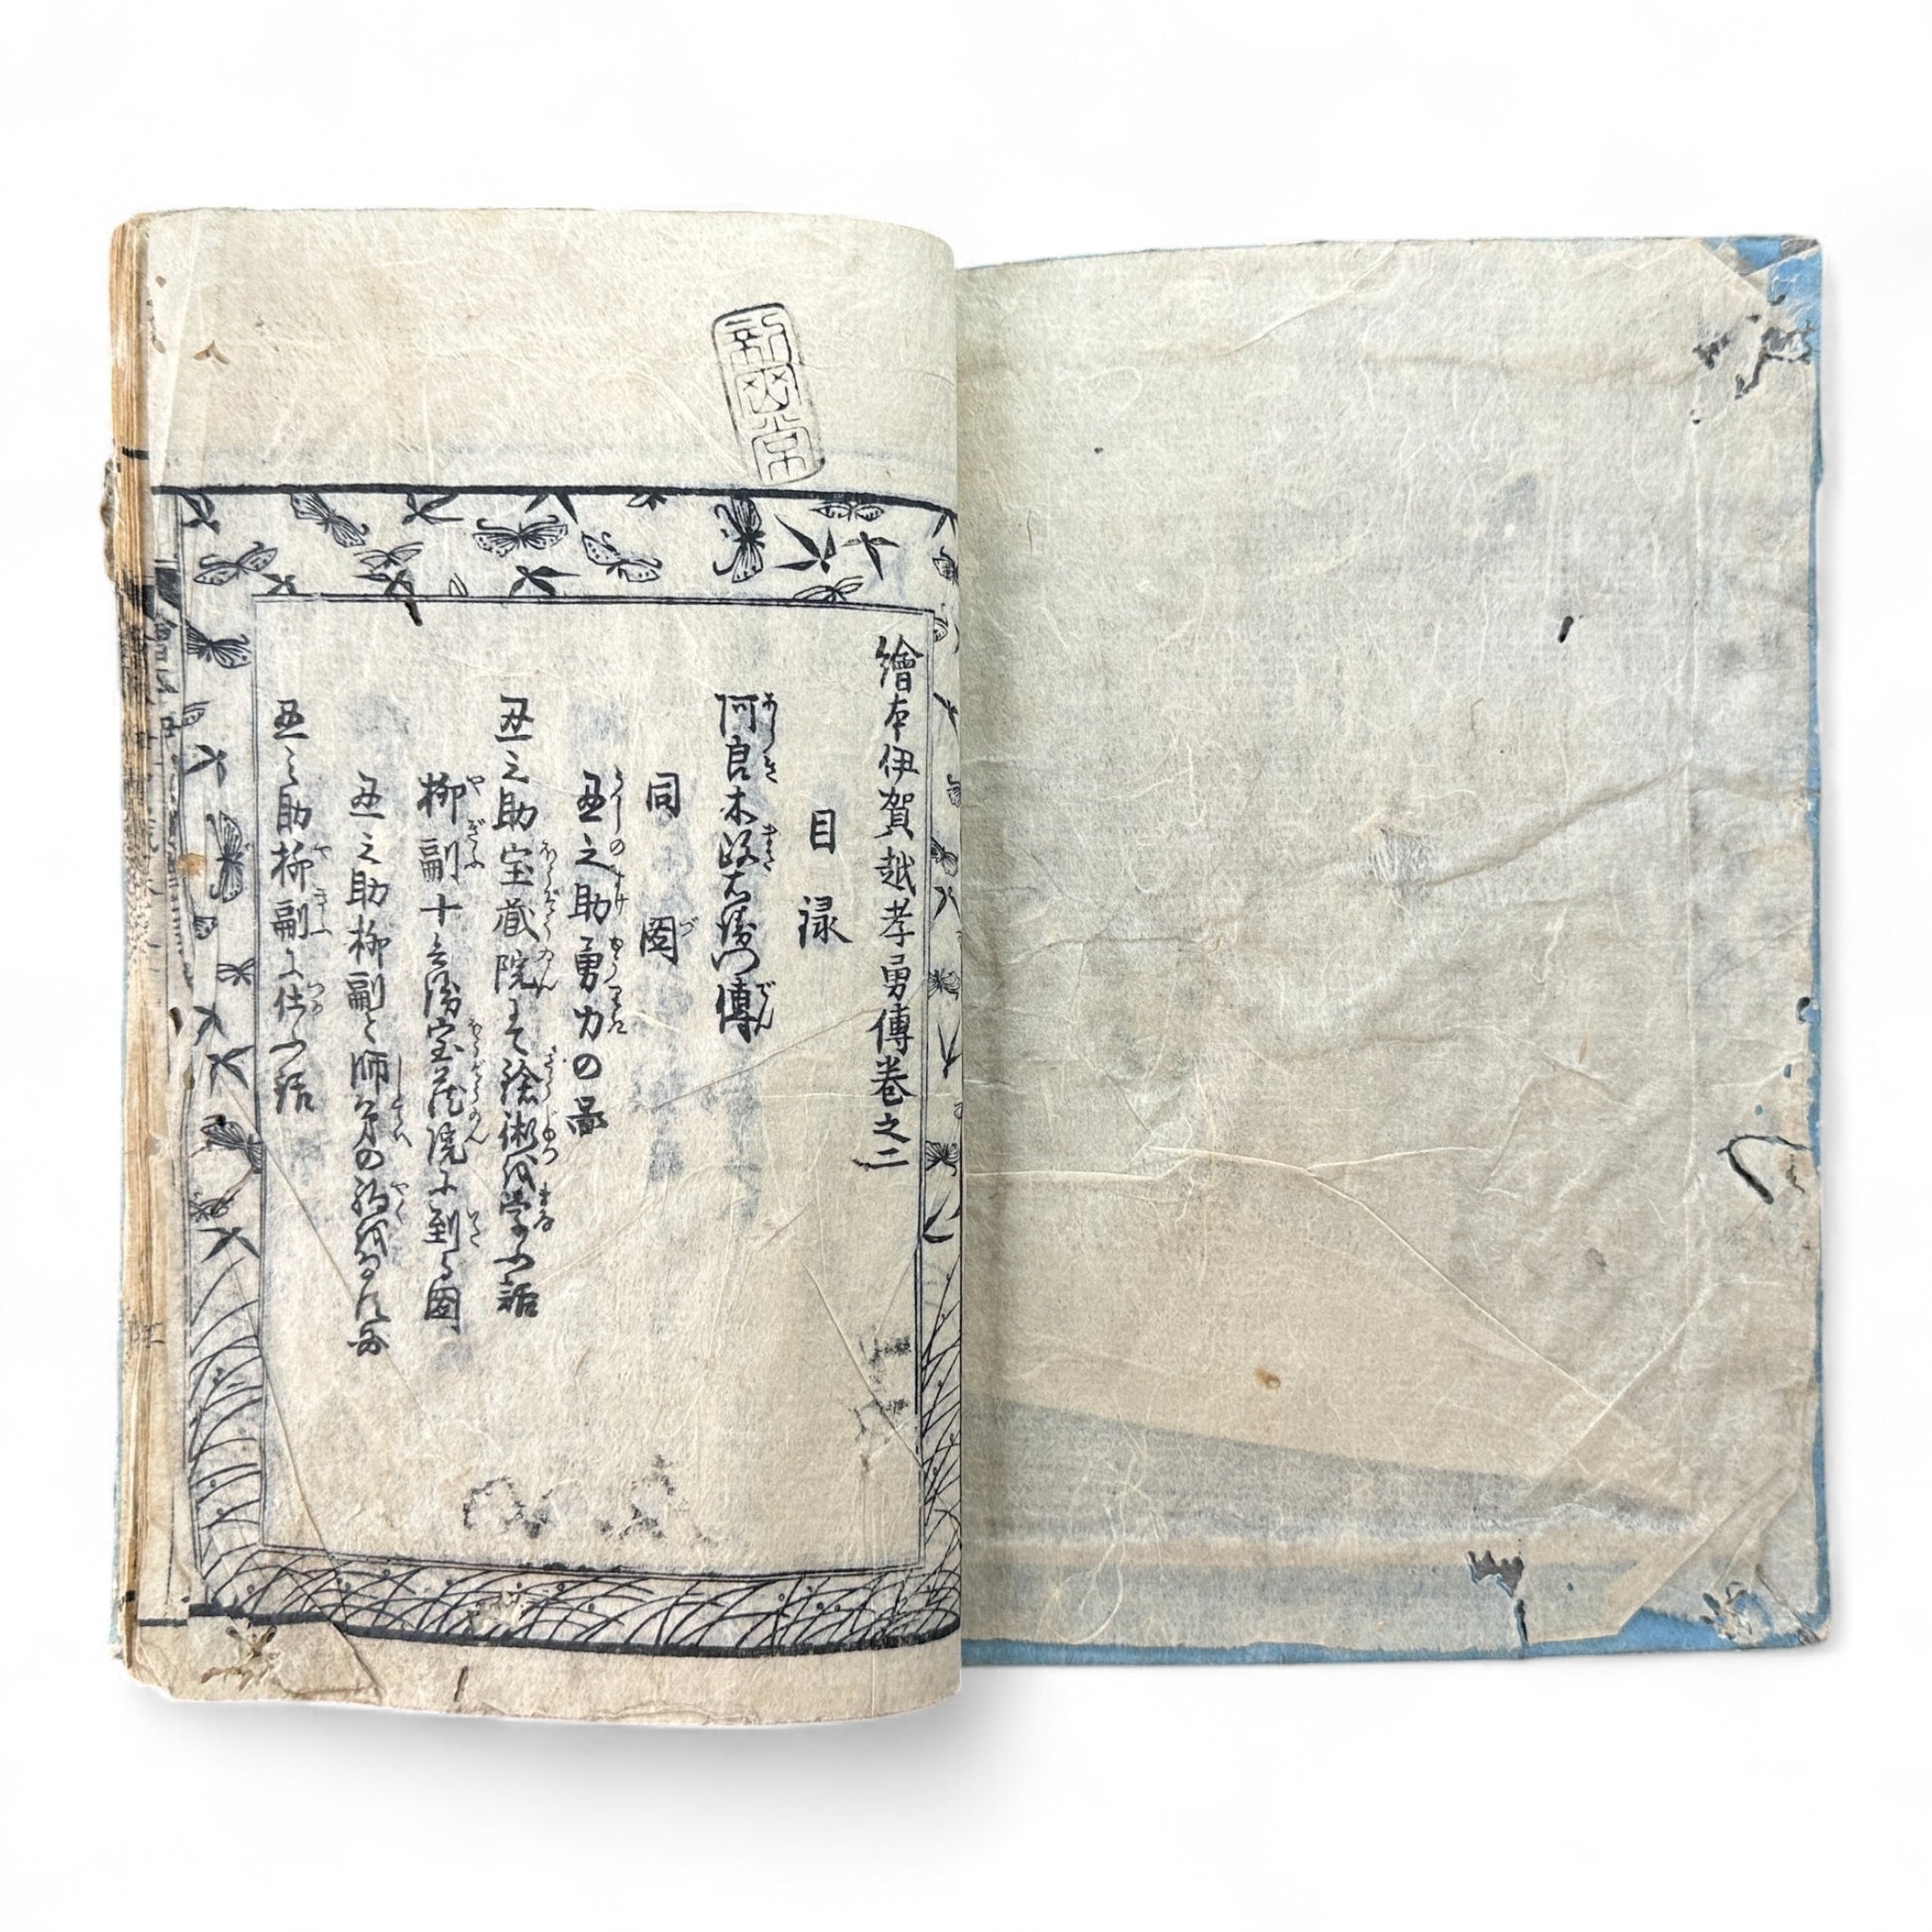 繪本伊賀越孝勇傳巻之二
目録
阿良木政右衛門傳
同圖
丑之助勇力の圖
丑之助宝蔵院にて鎗術を学ふ話
柳副十兵衛宝蔵院に到る圖
丑之助柳副と師弟の約をなす図
丑之助柳副に仕ふ話